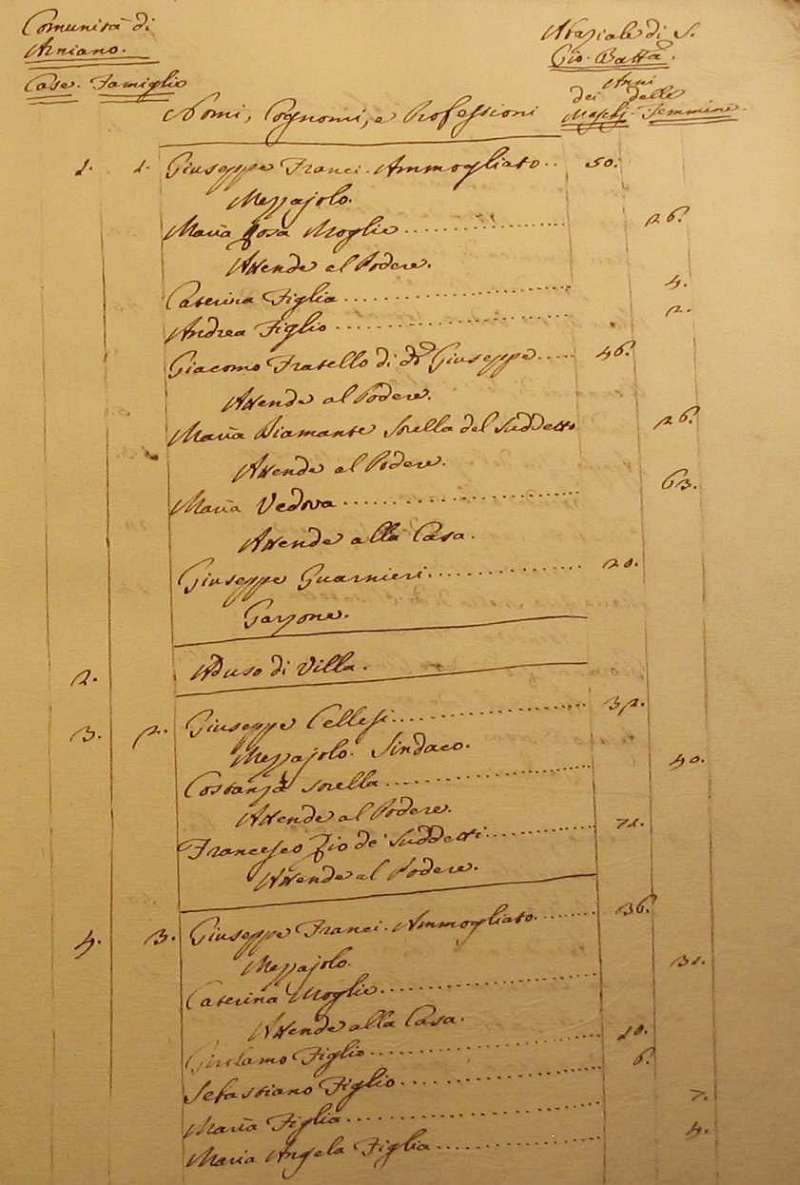 Comunità di
Asciano.
Case. Famiglie
Nomi, Cognomi, e Professioni
di S.
Gio. Batta.
Anni
dei delle
Maschj. Femmine.
1. 1. Giuseppe Franci. Ammogliato.. 50.
Mezzajolo.
Maria Rosa Moglie .......... 26.
Attende al Podere.
Caterina Figlia .......... 4.
Andrea Figlio .......... 2.
Giacomo Fratello di do Giuseppe..... 46.
Attende al Podere.
Maria Diamante Sorella del Suddetto 26.
Attende al Podere.
Maria Vedova .......... 63.
Attende alla Casa.
Giuseppe Guarnieri .......... 20.
Garzone.
2. Ad uso di Villa.
3. 2. Giuseppe Cellesi .......... 32.
Mezzajolo. Sindaco.
Costanza Sorella .......... 40.
Attende al Podere.
Francesco Zio de' Suddetti .......... 71.
Attende al Podere.
4. 3. Giuseppe Franci. Ammogliato ....... 36.
Mezzajolo.
Caterina Moglie .......... 31.
Attende alla Casa.
Girolamo Figlio .......... 10.
Sebastiano Figlio .......... 6.
Maria Figlia .......... 7.
Maria Angela Figlia .......... 4.